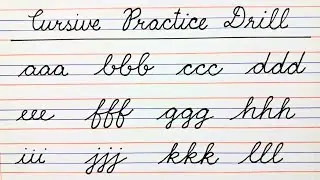 Cursive Practice Drill
aaa bbb ccc ddd
eee fff ggg hhh
iii jjj kkk lll